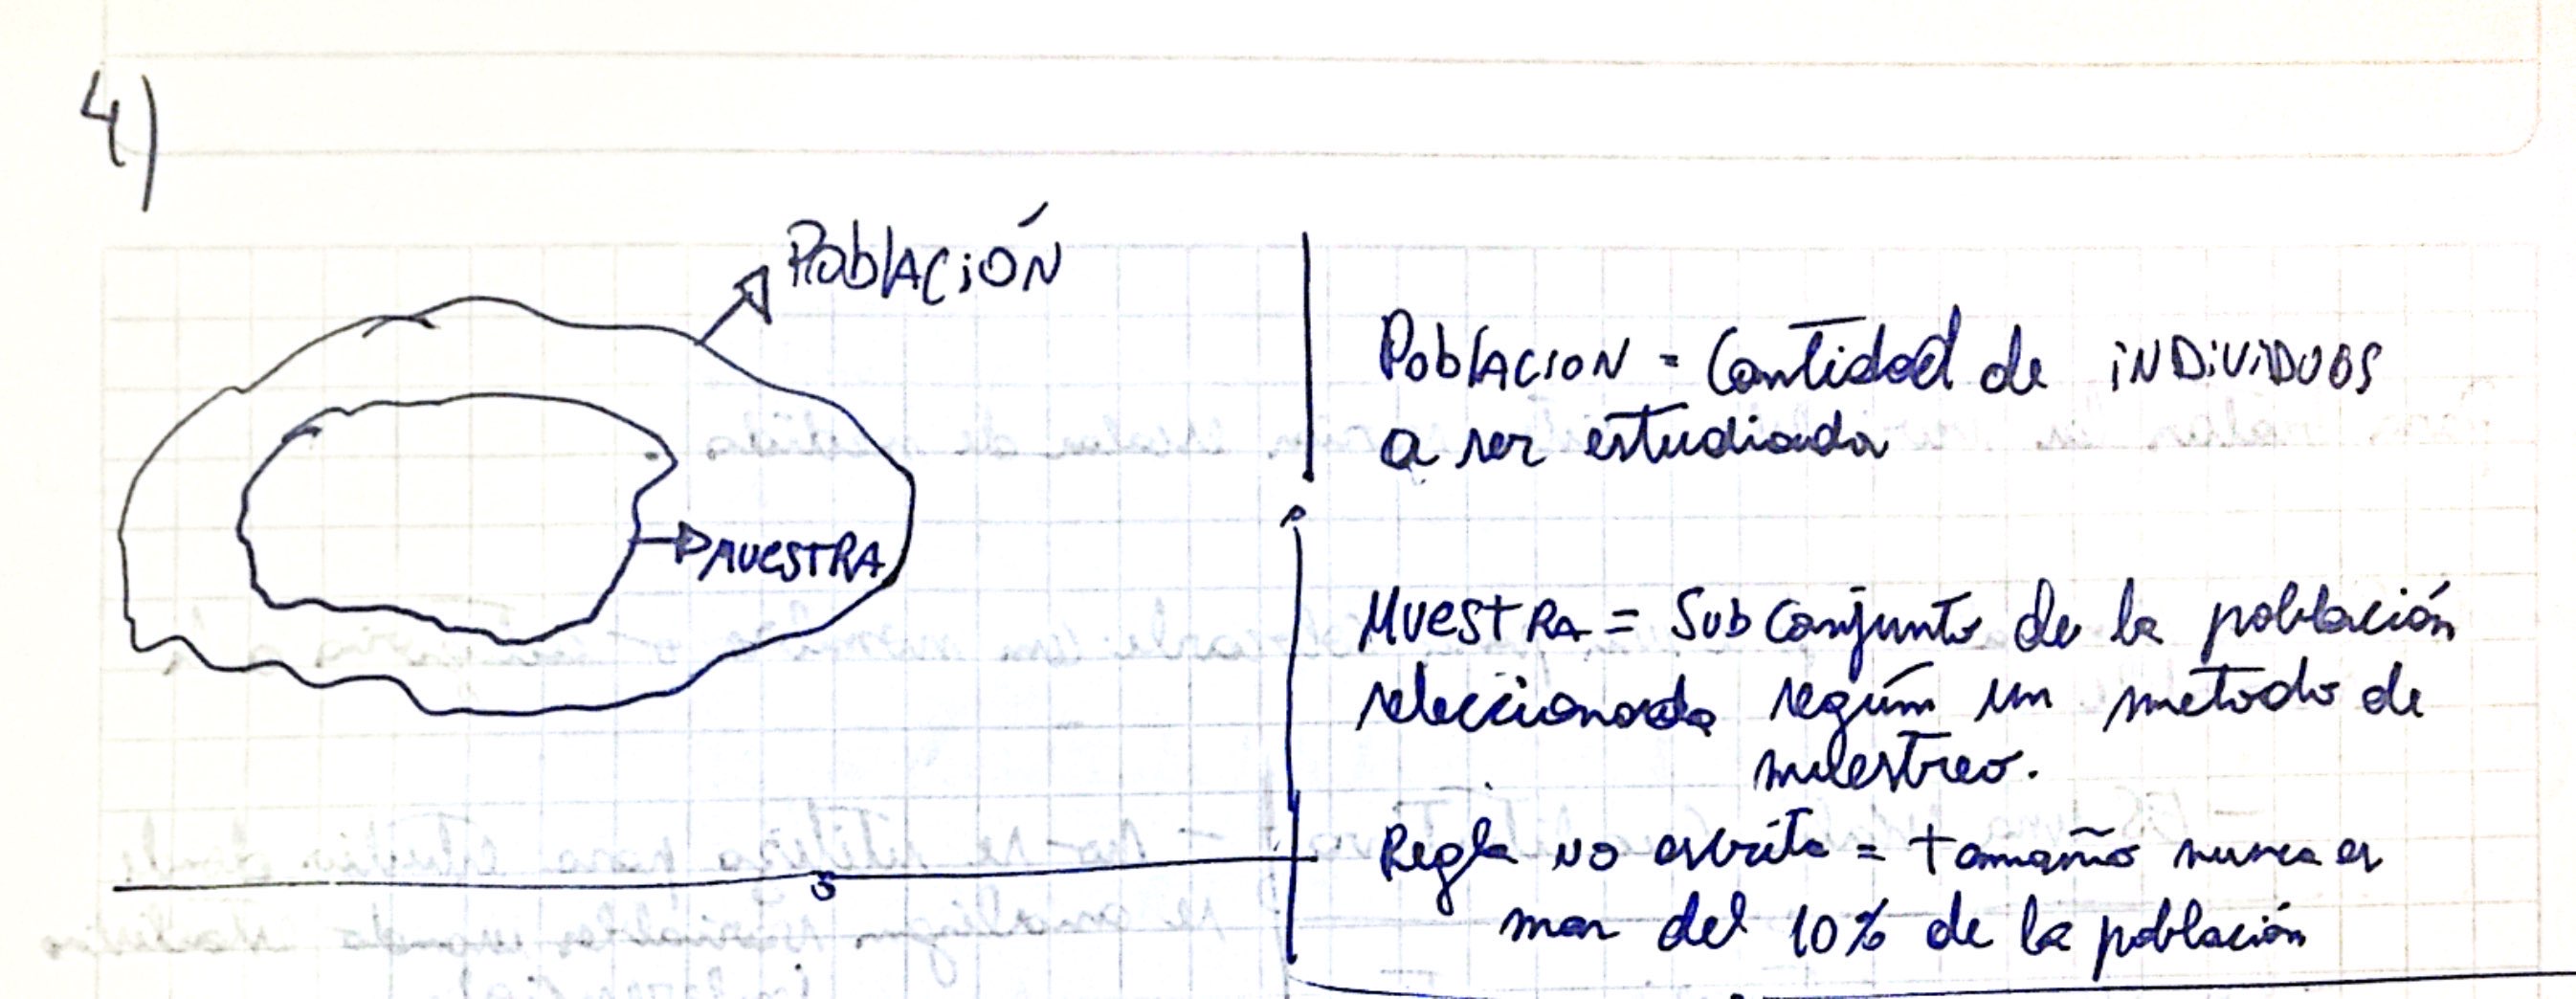 4)
PoblACiÓN
MUESTRA
PoblACION = Cantidad de iNDiViDUOS
a ser estudiada
MUESTRA = SubConjunto de la población
seleccionada según un metodo de
muestreo.
Regla NO escrita = tamaño nunca es
mas del 10% de la población